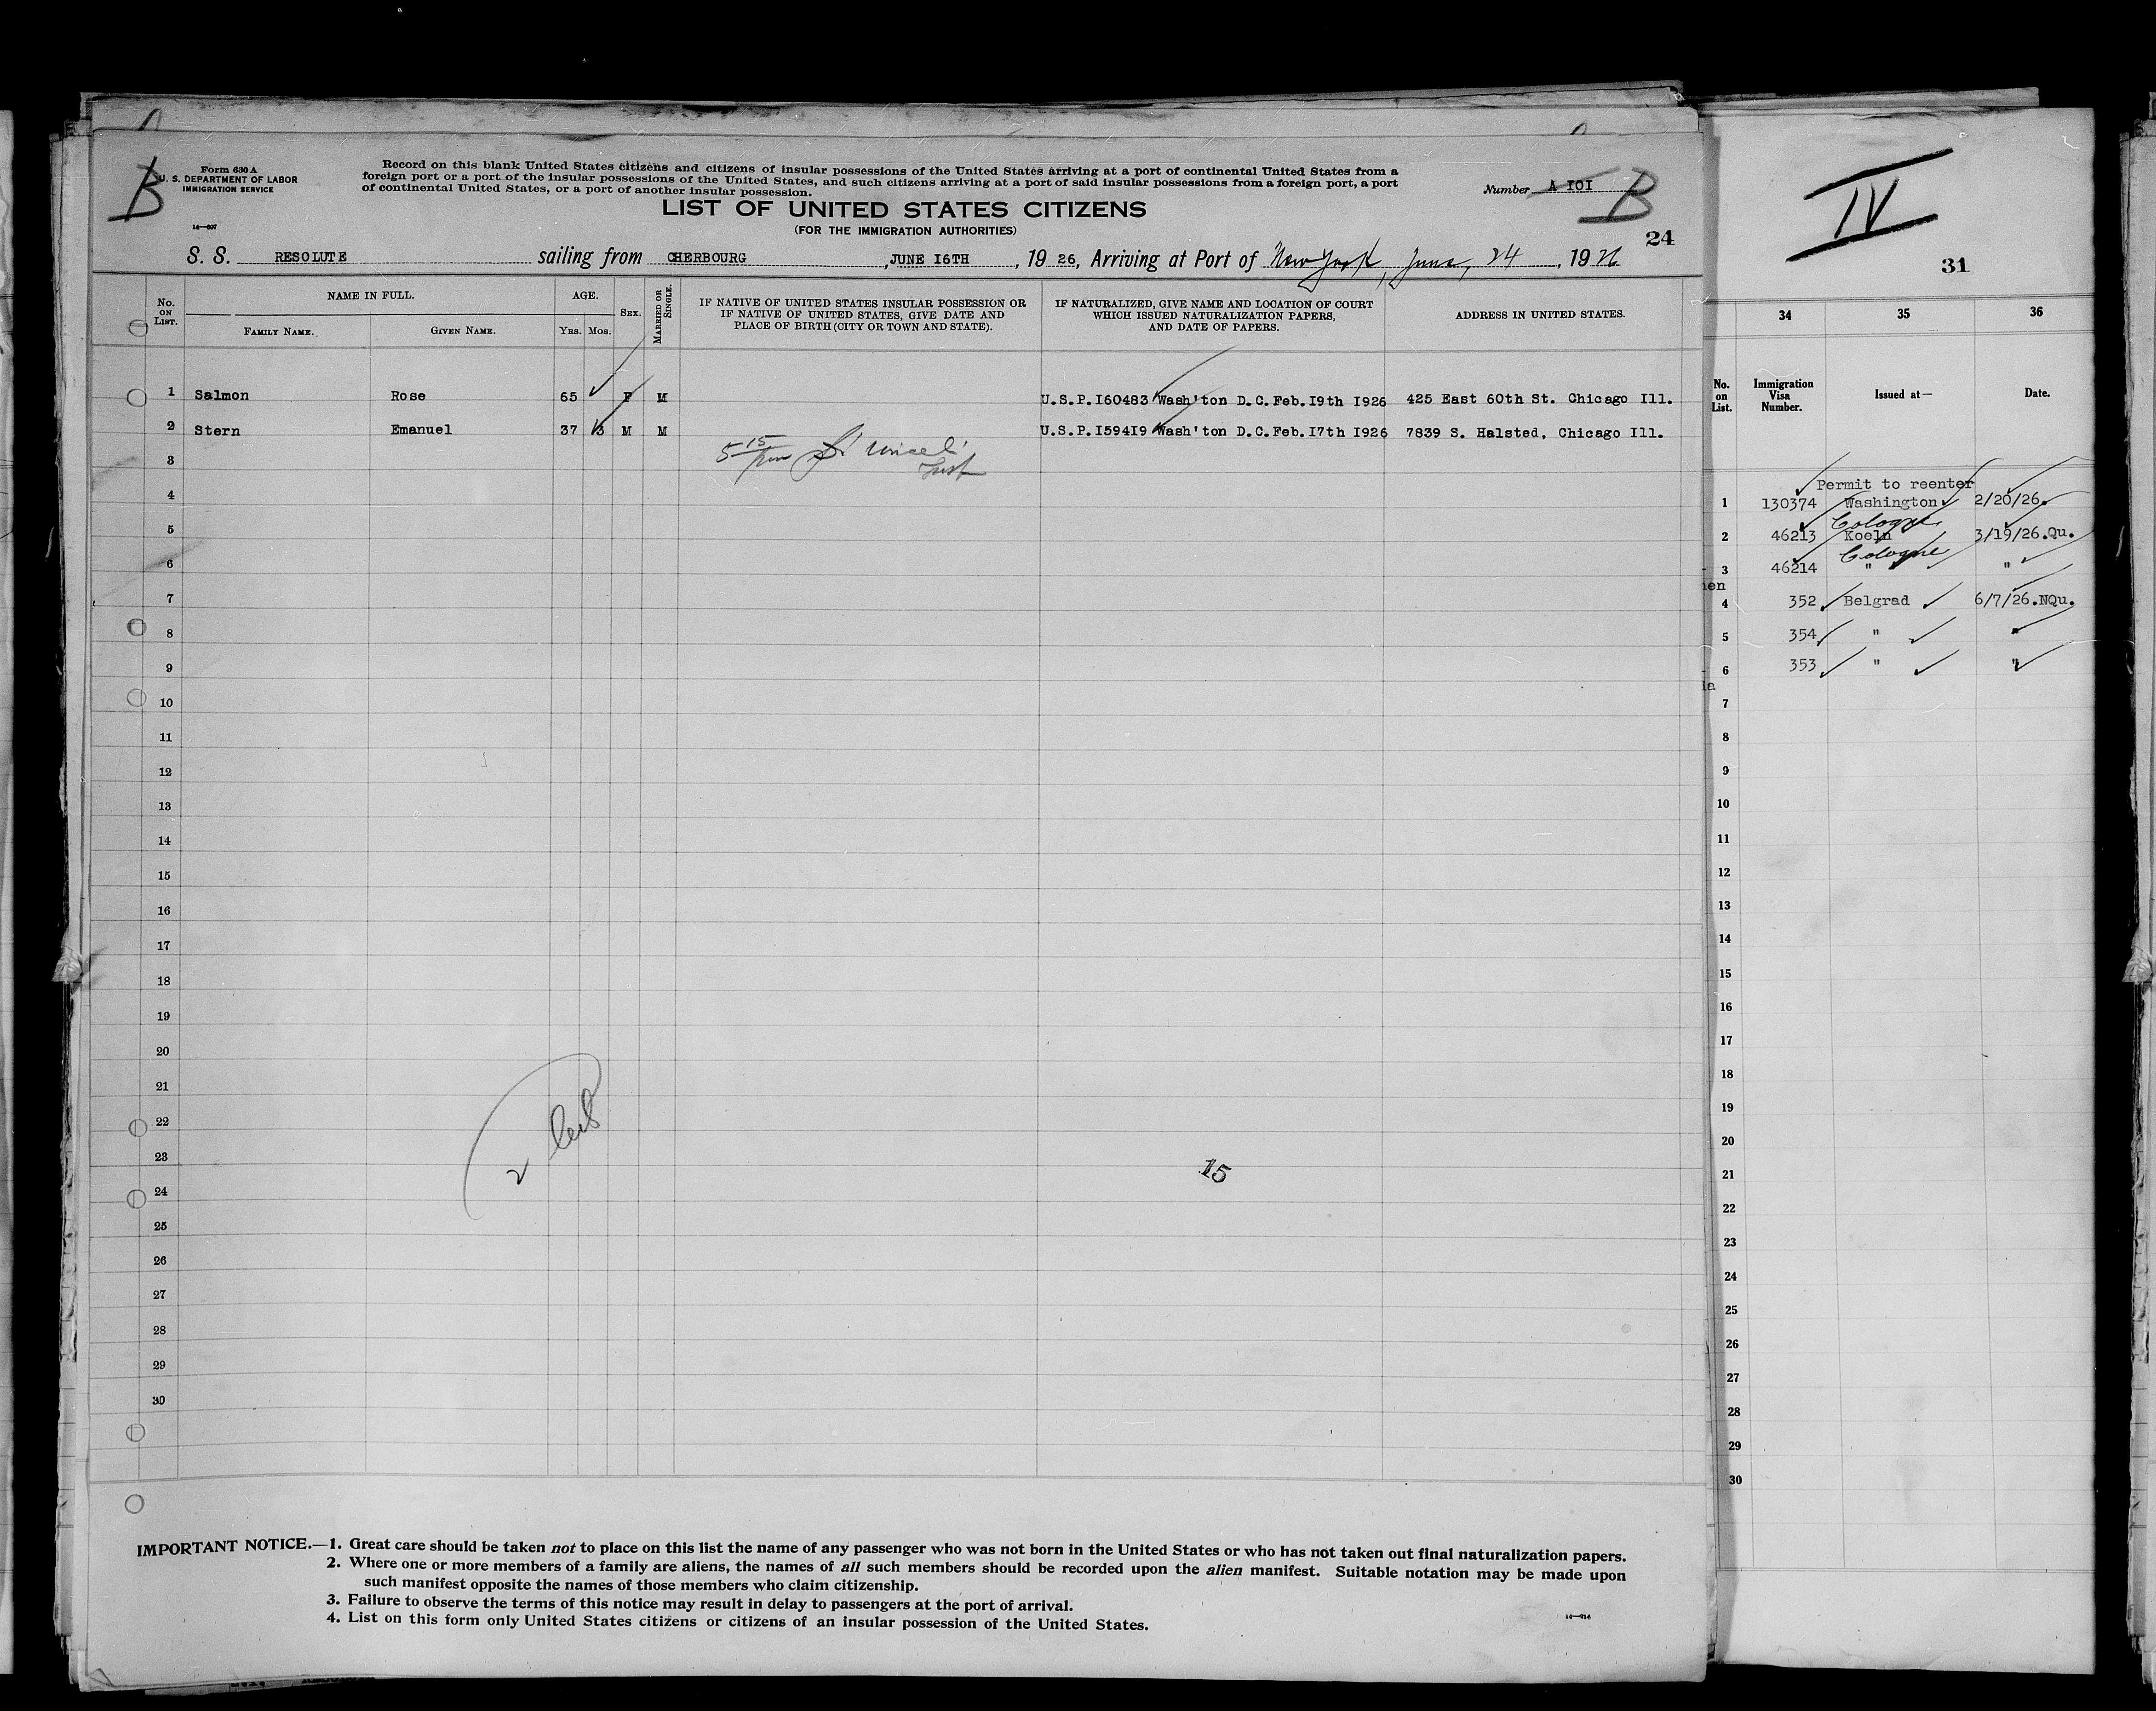 B
Form 630 A
U. S. DEPARTMENT OF LABOR
IMMIGRATION SERVICE
14—607
Record on this blank United States citizens and citizens of insular possessions of the United States arriving at a port of continental United States from a
foreign port or a port of the insular possessions of the United States, and such citizens arriving at a port of said insular possessions from a foreign port, a port
of continental United States, or a port of another insular possession.
Number A IOI B
LIST OF UNITED STATES CITIZENS
(FOR THE IMMIGRATION AUTHORITIES)
24
S. S. RESOLUTE sailing from CHERBOURG, JUNE I6TH, 19 26, Arriving at Port of New York, June, 24, 19 26
No. on List.
NAME IN FULL.
Family Name.
Given Name.
AGE.
Yrs.
Mos.
Sex.
Married or Single.
IF NATIVE OF UNITED STATES INSULAR POSSESSION OR
IF NATIVE OF UNITED STATES, GIVE DATE AND
PLACE OF BIRTH (CITY OR TOWN AND STATE).
IF NATURALIZED, GIVE NAME AND LOCATION OF COURT
WHICH ISSUED NATURALIZATION PAPERS,
AND DATE OF PAPERS.
ADDRESS IN UNITED STATES.
1 Salmon Rose 65 F M U.S.P.I60483 Wash'ton D.C.Feb.I9th I926 425 East 60th St. Chicago Ill.
2 Stern Emanuel 37 3 M M U.S.P.I594I9 Wash'ton D.C.Feb.I7th I926 7839 S. Halsted, Chicago Ill.
5 15
3
4
5
6
7
8
9
10
11
12
13
14
15
16
17
18
19
20
21
22
23
24
25
26
27
28
29
30
2
15
IMPORTANT NOTICE.—1. Great care should be taken not to place on this list the name of any passenger who was not born in the United States or who has not taken out final naturalization papers.
2. Where one or more members of a family are aliens, the names of all such members should be recorded upon the alien manifest. Suitable notation may be made upon
such manifest opposite the names of those members who claim citizenship.
3. Failure to observe the terms of this notice may result in delay to passengers at the port of arrival.
4. List on this form only United States citizens or citizens of an insular possession of the United States.
IV
31
34
35
36
No. on List.
Immigration Visa Number.
Issued at—
Date.
Permit to reenter
1 130374 Washington 2/20/26.
Cologne
2 46213 Koeln 3/19/26.Qu.
Cologne
3 46214 " "
ien
4 352 Belgrad 6/7/26.NQu.
5 354 " "
6 353 " "
ia
7
8
9
10
11
12
13
14
15
16
17
18
19
20
21
22
23
24
25
26
27
28
29
30